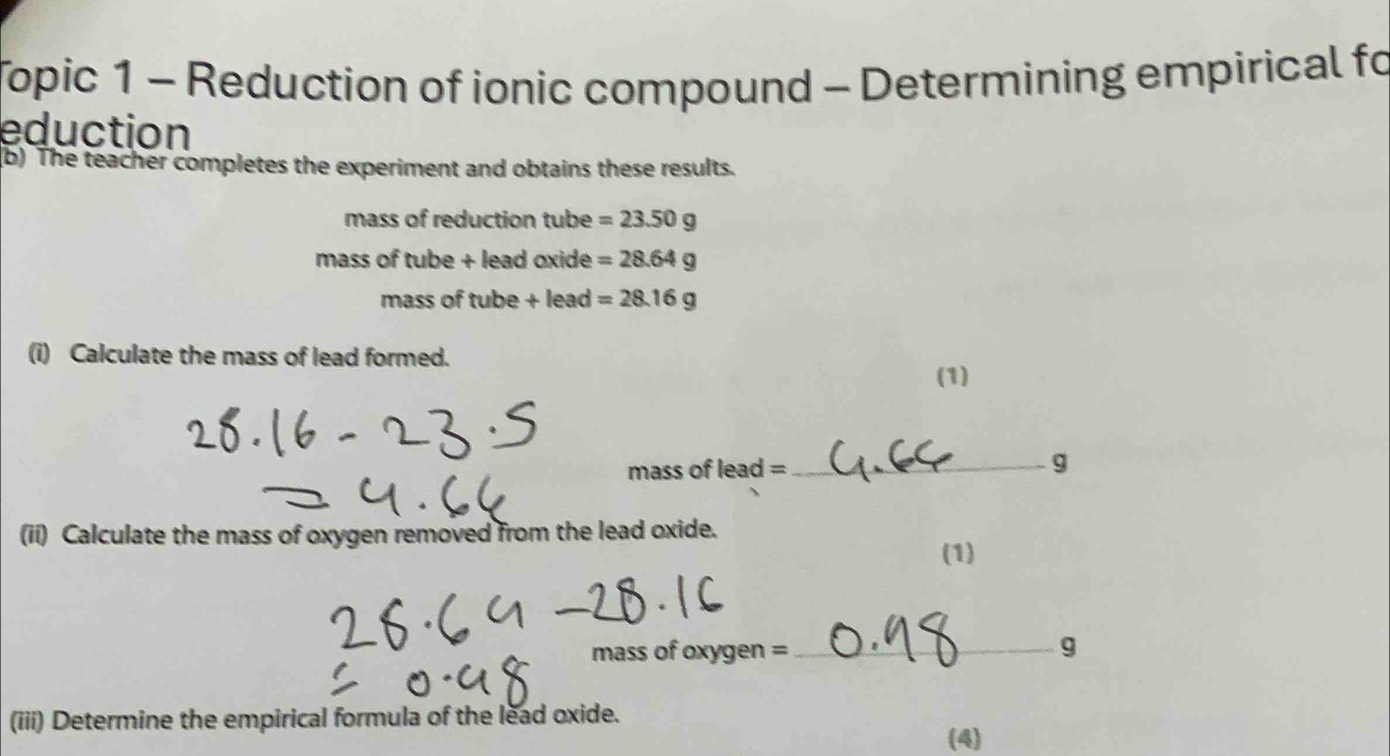 Topic 1 – Reduction of ionic compound – Determining empirical fo
eduction
(b) The teacher completes the experiment and obtains these results.
mass of reduction tube = 23.50 g
mass of tube + lead oxide = 28.64 g
mass of tube + lead = 28.16 g
(i) Calculate the mass of lead formed.
(1)
28.16 - 23.5
= 4.66
mass of lead = 4.66 g
(ii) Calculate the mass of oxygen removed from the lead oxide.
(1)
28.64 - 28.16
= 0.48
mass of oxygen = 0.48 g
(iii) Determine the empirical formula of the lead oxide.
(4)